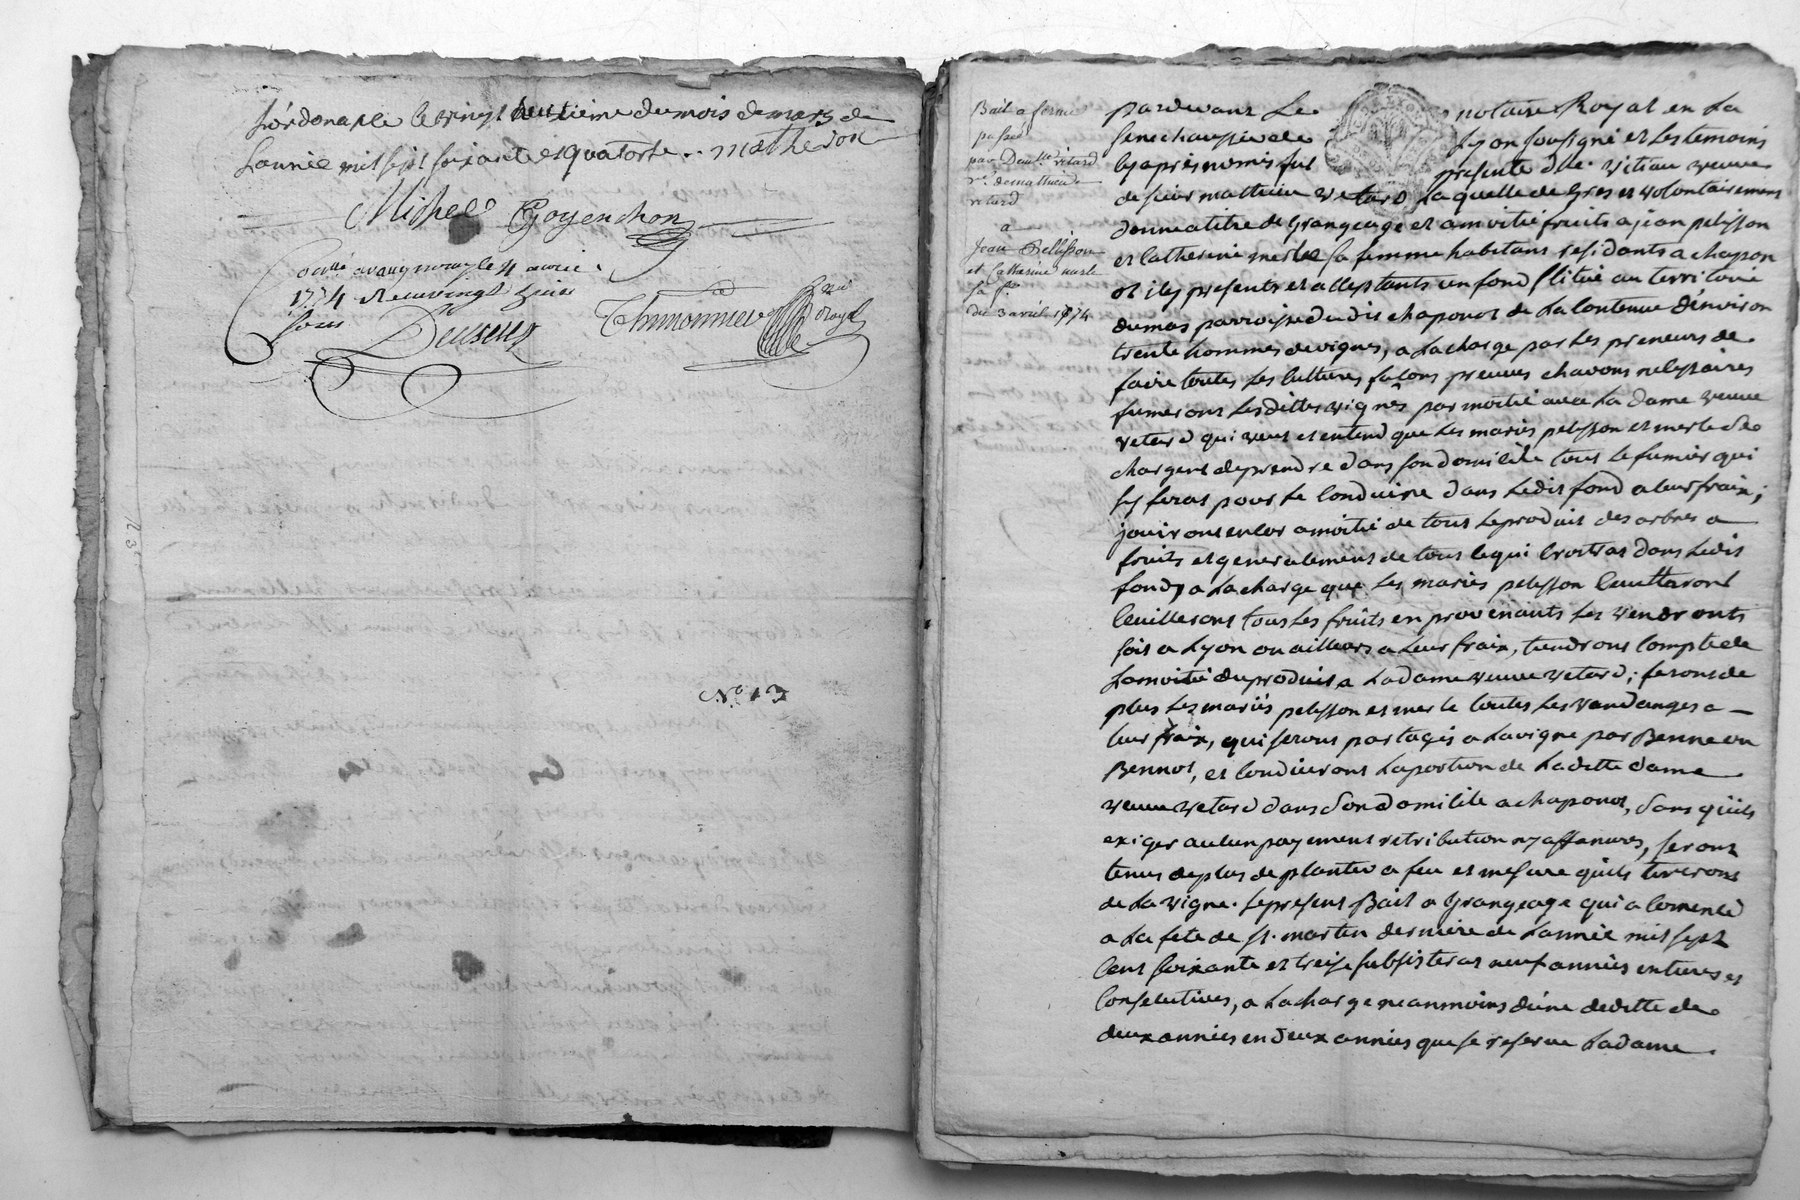 le vingt huitieme du mois de mars de
lannée mil sept soixante et quatorse .. matheron
Michel Goyenchon
1774
sous
Thimonnier
Royal
N.º 13
Bail a ferme
passé
par Dem.lle vitard
v.e de mathieu
vetard
a
Jean Pellisson
et Catherine merle
sa f.e
du 3 avril 1774
pardevant Le notaire Royal en La
senechaussée de Lyon soussigné et Les temoins
bas apres només fut presente d.lle vitau veuve
de sieur mathieu vetard Laquelle de gres et volontairement
donne a titre de grangeage et a moitié fruits a jean pelisson
et Catherine merle sa femme habitans residants a chapon
ot icy presents et acceptants un fond scitué au territoire
du mas parroisse dudit chaponot de La Contenue d'environ
trente hommes de vignes, a La charge par Les preneurs de
faire toutes Les Cultures facons preuves chavons necessaires
fumeront Lesdittes vignes par moitié avec La dame veuve
vetard qui veut et entend que Les mariés pelisson et merle se
chargent de prendre dans son domicile tout Le fumier qui
sy feras pour Le Conduire dans Ledit fond a leur fraix;
jouiront encor a moitié de tout Le produit des arbres a
fruits et generalement de tout Cequi Croitras dans Ledit
fond, a La charge que Les mariés pelisson Ceuilleront
Ceuilleront tous Les fruits en provenants Les vendronts
soit a Lyon ou ailleurs a Leur fraix, tiendront Compte de
La moitié du produit a La dame veuve vetard; feront de
plus Les mariés pelisson et merle toutes Les vandanges a
leur fraix, qui seront partagés a La vigne par Benne ou
Bennot, et Conduiront La portion de La ditte dame
veuve vetard dans son domicile a chaponot, sans qu'ils
exiger aucun payement retribution ny affanures, seront
tenus de plus de planter a feu et mesure quils tireront
de La vigne. Le present Bail a Grangeage qui a Comencé
a La fete de St. martin derniere de Lannée mil sept
Cent soixante et treise subsisteras neuf années entieres et
Consecutives, a La charge neanmoins d'une deditte de
deux années en deux années que se reserve La dame